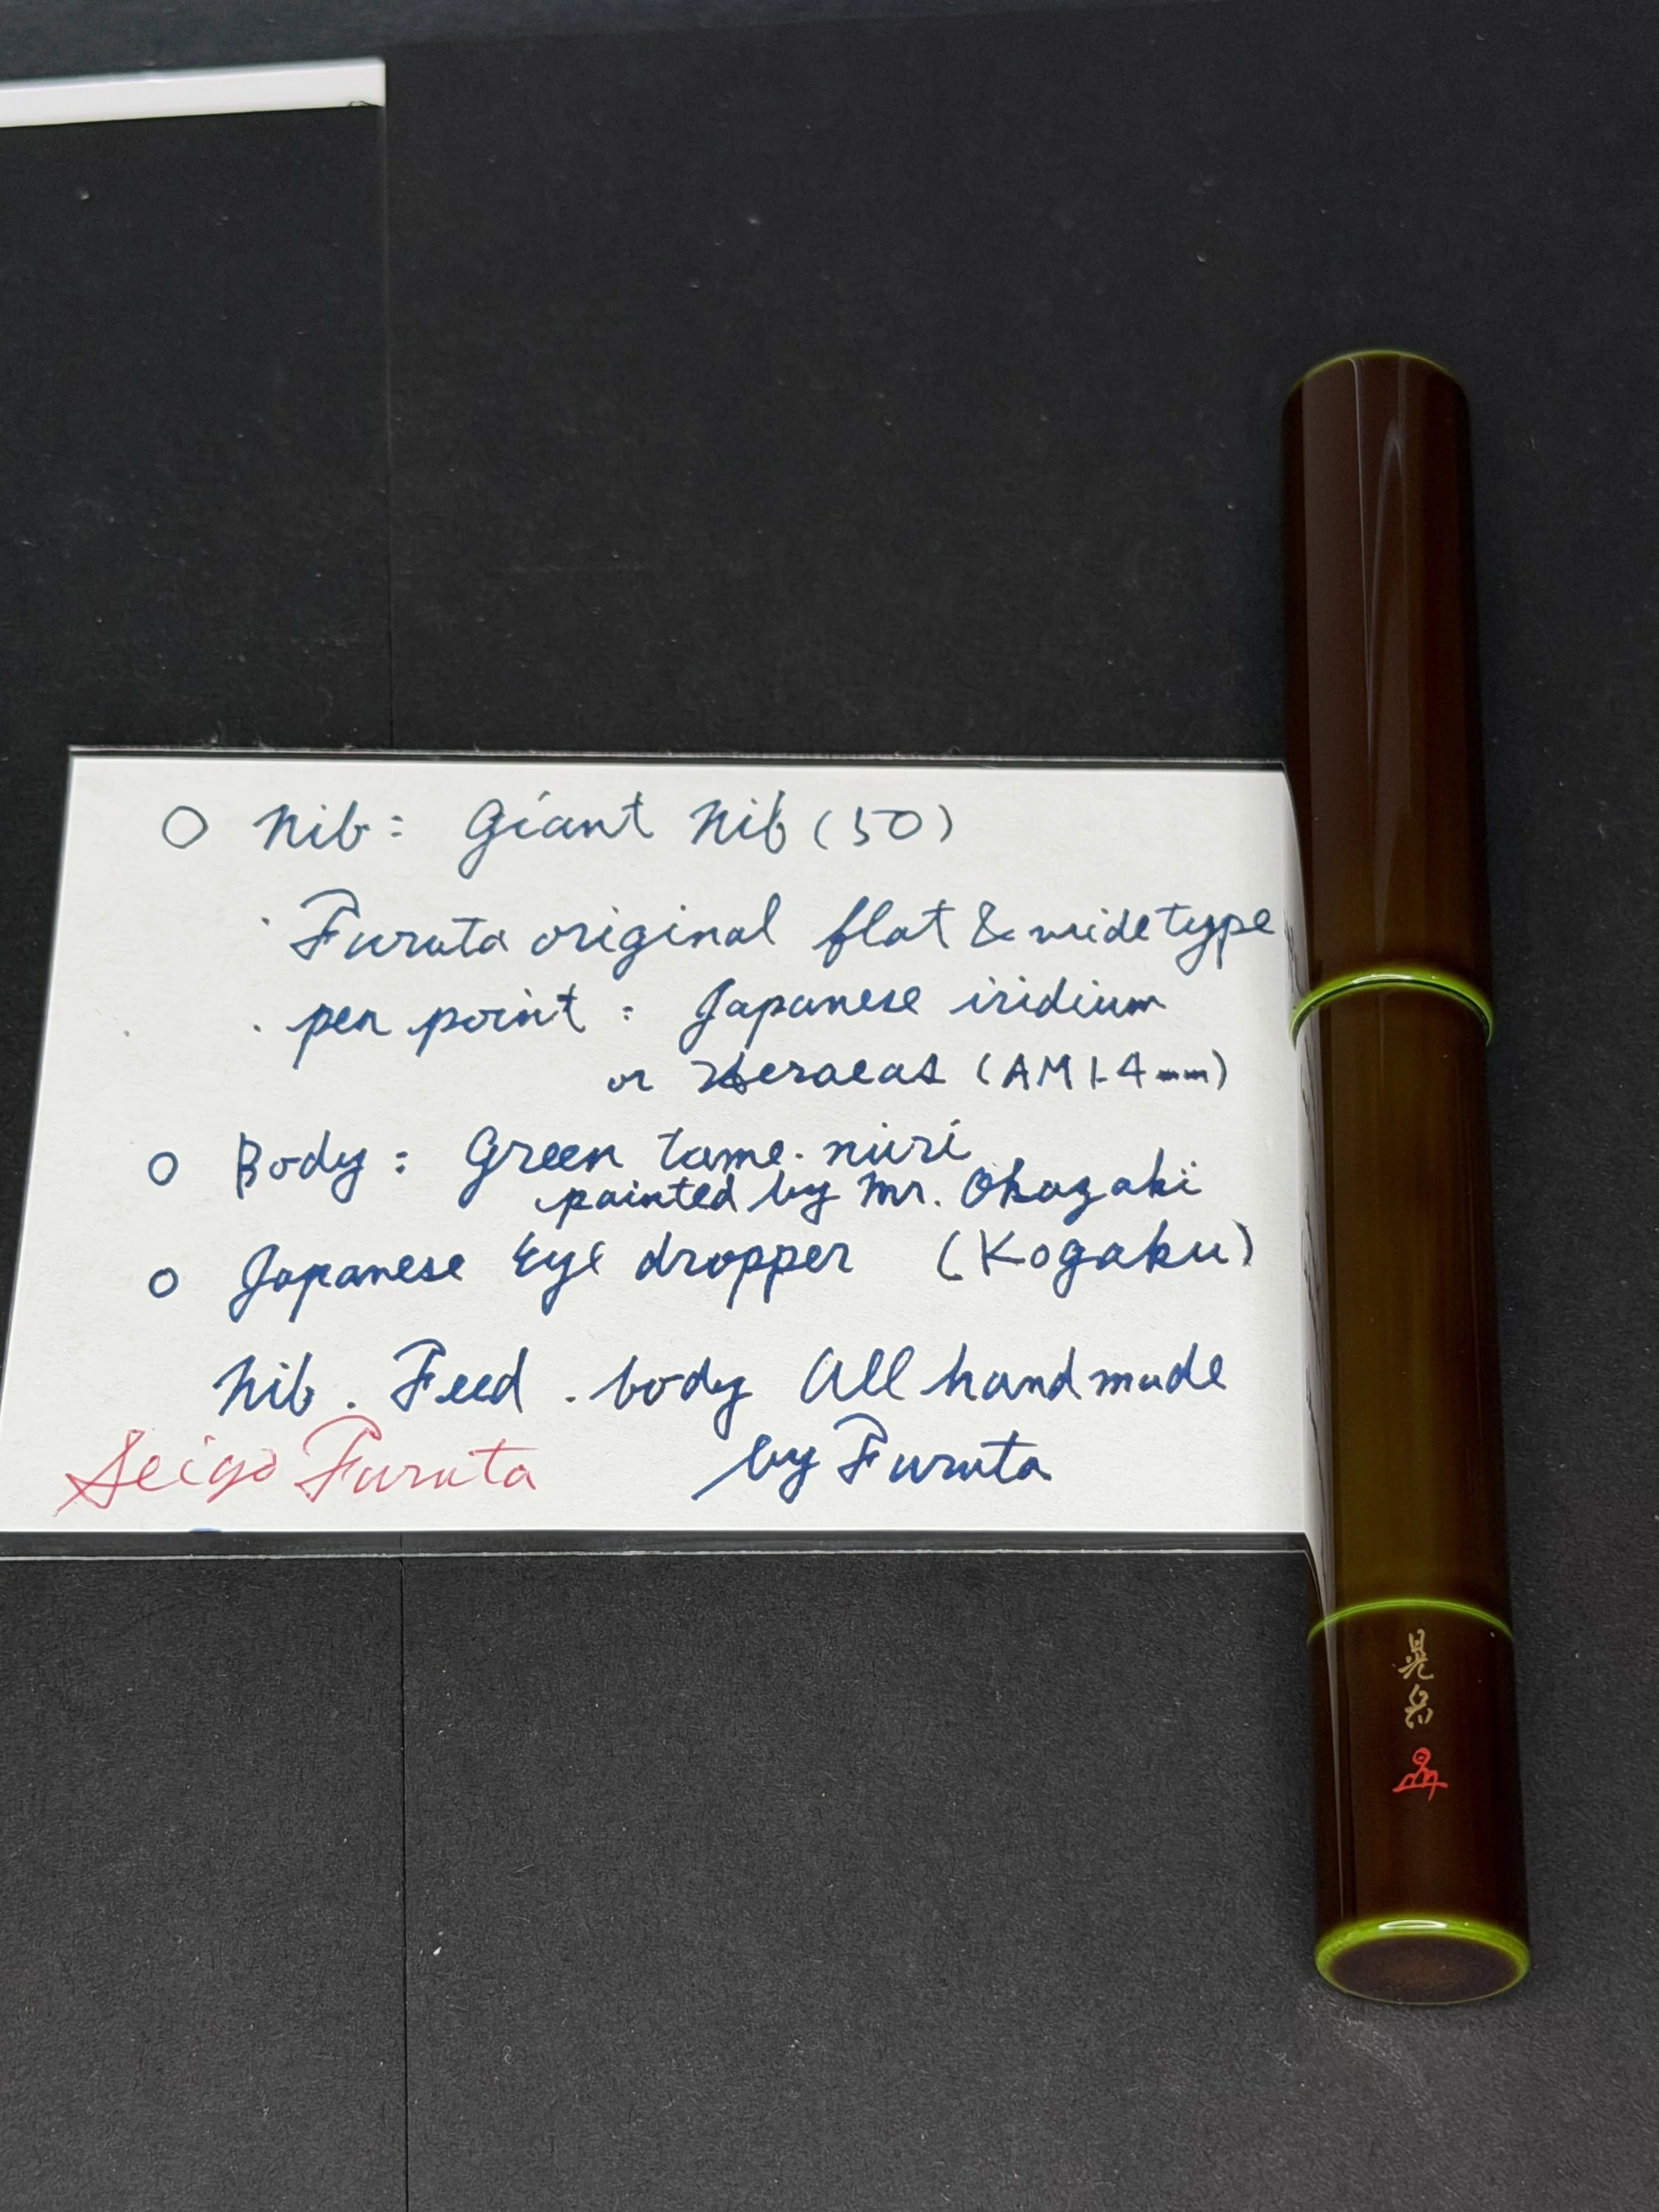 ○ Nib: Giant Nib (50)
· Furuta original flat & wide type
· pen point: Japanese iridium
or Heraeas (AM 1.4mm)
○ Body: Green tame·nuri
painted by Mr. Okazaki
○ Japanese Eye dropper (Kogaku)
Nib. Feed. body All handmade
by Furuta
Seigo Furuta
晃岳